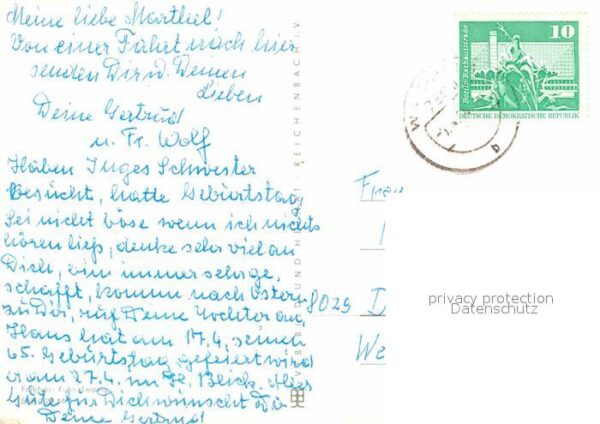 Meine liebe Marthel!
Von einer Fahrt nach hier
senden Dir u. Deinen
Lieben
Deine Gertrud
u. Fr. Wolf
Haben Inges Schwester
besucht, hatte Geburtstag
Sei nicht böse wenn ich nichts
hören ließ, denke sehr viel an
Dich, bin immer sehr ge-
schafft, komm nach Ostern
zu Dir, ruf Deine Tochter an,
Hans hat am 17.4. seinen
65. Geburtstag gefeiert wird
er am 27.4. im Alles
Gute für Dich wünscht Dir
Deine Gertrud
10
Berlin, Rathausstraße
DEUTSCHE DEMOKRATISCHE REPUBLIK
Frau
8029 D
We
privacy protection
Datenschutz
REICHENBACH I. V.